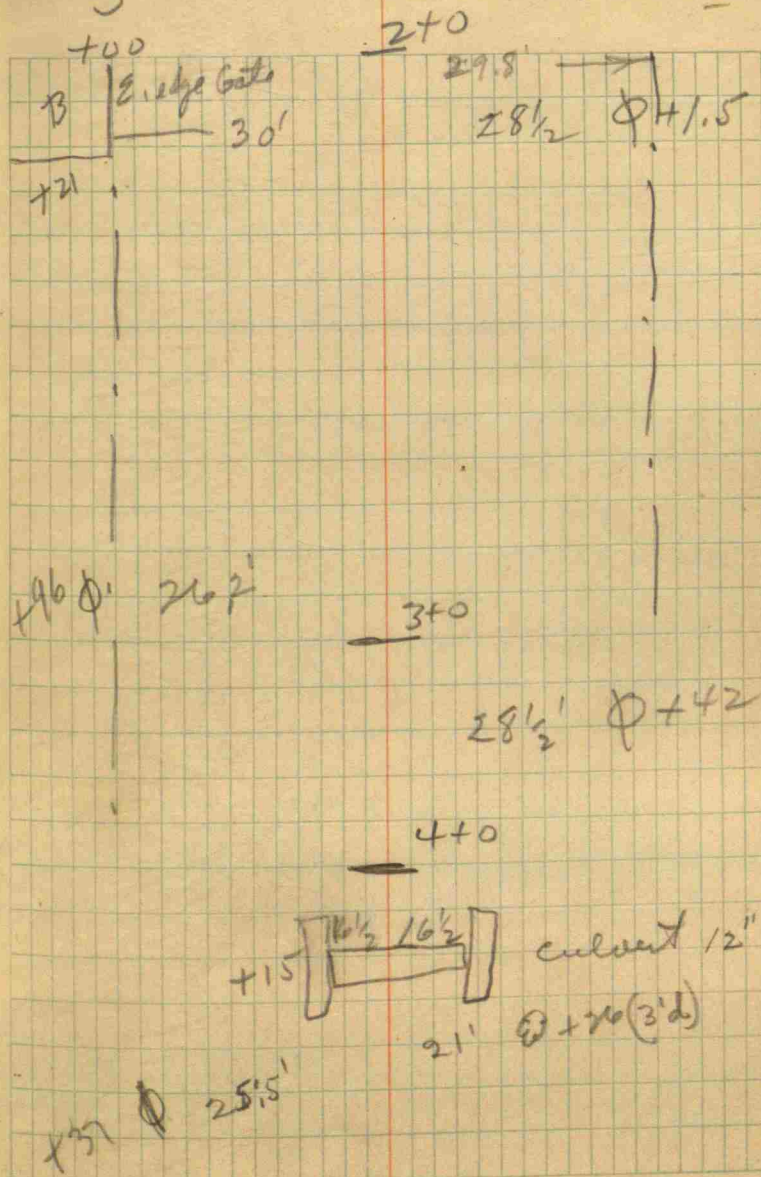 2+0
+00
29.8'
B E. edge Gate
30'
28½ ϕ +1.5
+21
+96 ϕ 26.2'
3+0
28½' ϕ +42
4+0
16½ 16½
+15 culvert 12"
21' +26 (3'd)
+37 ϕ 25.5'